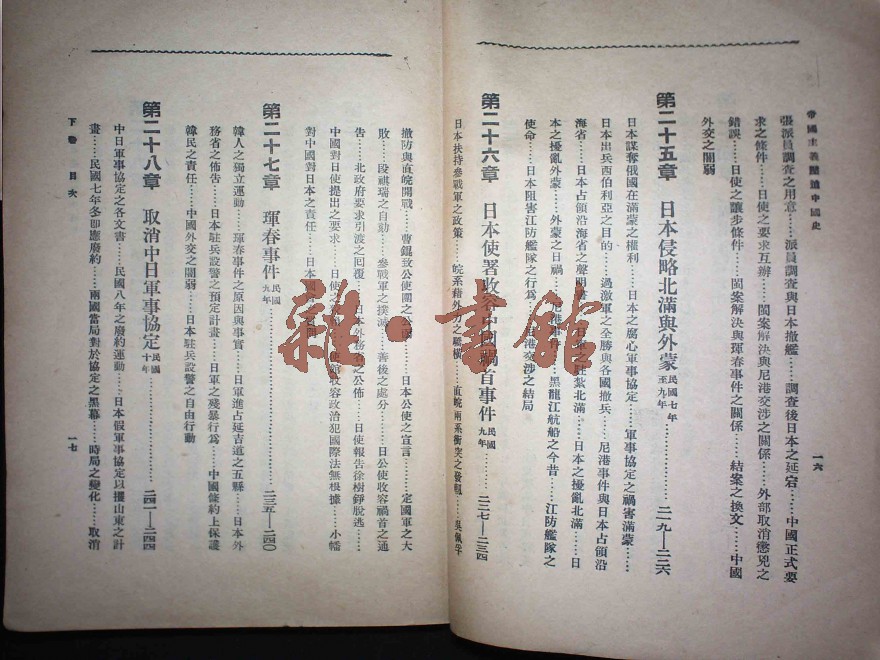 帝國主義壓迫中國史
一六
張派員調查之用意……派員調查與日本撤艦……調查後日本之延宕……中國正式要
求之條件……日使之要求互辦……閩案解決與尼港交涉之關係……外部取消懲兇之
錯誤……日使之讓步條件……閩案解決與琿春事件之關係……結案之換文……中國
外交之闇弱
第二十五章 日本侵略北滿與外蒙 民國七年至九年……二一九—二二六
日本謀奪俄國在滿蒙之權利……日本之腐心軍事協定……軍事協定之禍害滿蒙……
日本出兵西伯利亞之目的……過激軍之全勝與各國撤兵……尼港事件與日本占領沿
海省……日本占領沿海省之聲明書……日軍之駐紮北滿……日本之擾亂北滿……日
本之擾亂外蒙……外蒙之日禍……尼港事件……黑龍江航船之今昔……江防艦隊之
使命……日本阻害江防艦隊之行爲……尼港交涉之結局
第二十六章 日本使署收容中國禍首事件 民國九年……二二七—二三四
日本扶持參戰軍之政策……皖系藉外力之驕橫……直皖兩系衝突之發軔……吳佩孚
撤防與直皖開戰……曹錕致公使團之公函……日本公使之宣言……定國軍之大
敗……段祺瑞之自劾……參戰軍之撲滅……善後之處分……日公使收容禍首之通
告……北政府要求引渡之回覆……日本外務省之公佈……日使報告徐樹錚脫逃……
中國對日使提出之要求……日使之……使館收容政治犯國際法無根據……小幡
對中國對日本之責任……日本國……
第二十七章 琿春事件 民國九年……二三五—二四〇
韓人之獨立運動……琿春事件之原因與事實……日軍進占延吉道之五縣……日本外
務省之佈告……日本駐兵設警之預定計畫……日軍之殘暴行爲……中國條約上保護
韓民之責任……中國外交之闇弱……日本駐兵設警之自由行動
第二十八章 取消中日軍事協定 民國十年……二四一—二四四
中日軍事協定之各文書……民國八年之廢約運動……日本假軍事協定以攫山東之計
畫……民國七年冬即應廢約……兩國當局對於協定之黑幕……時局之變化……取消
下卷 目次
一七
雜·書館